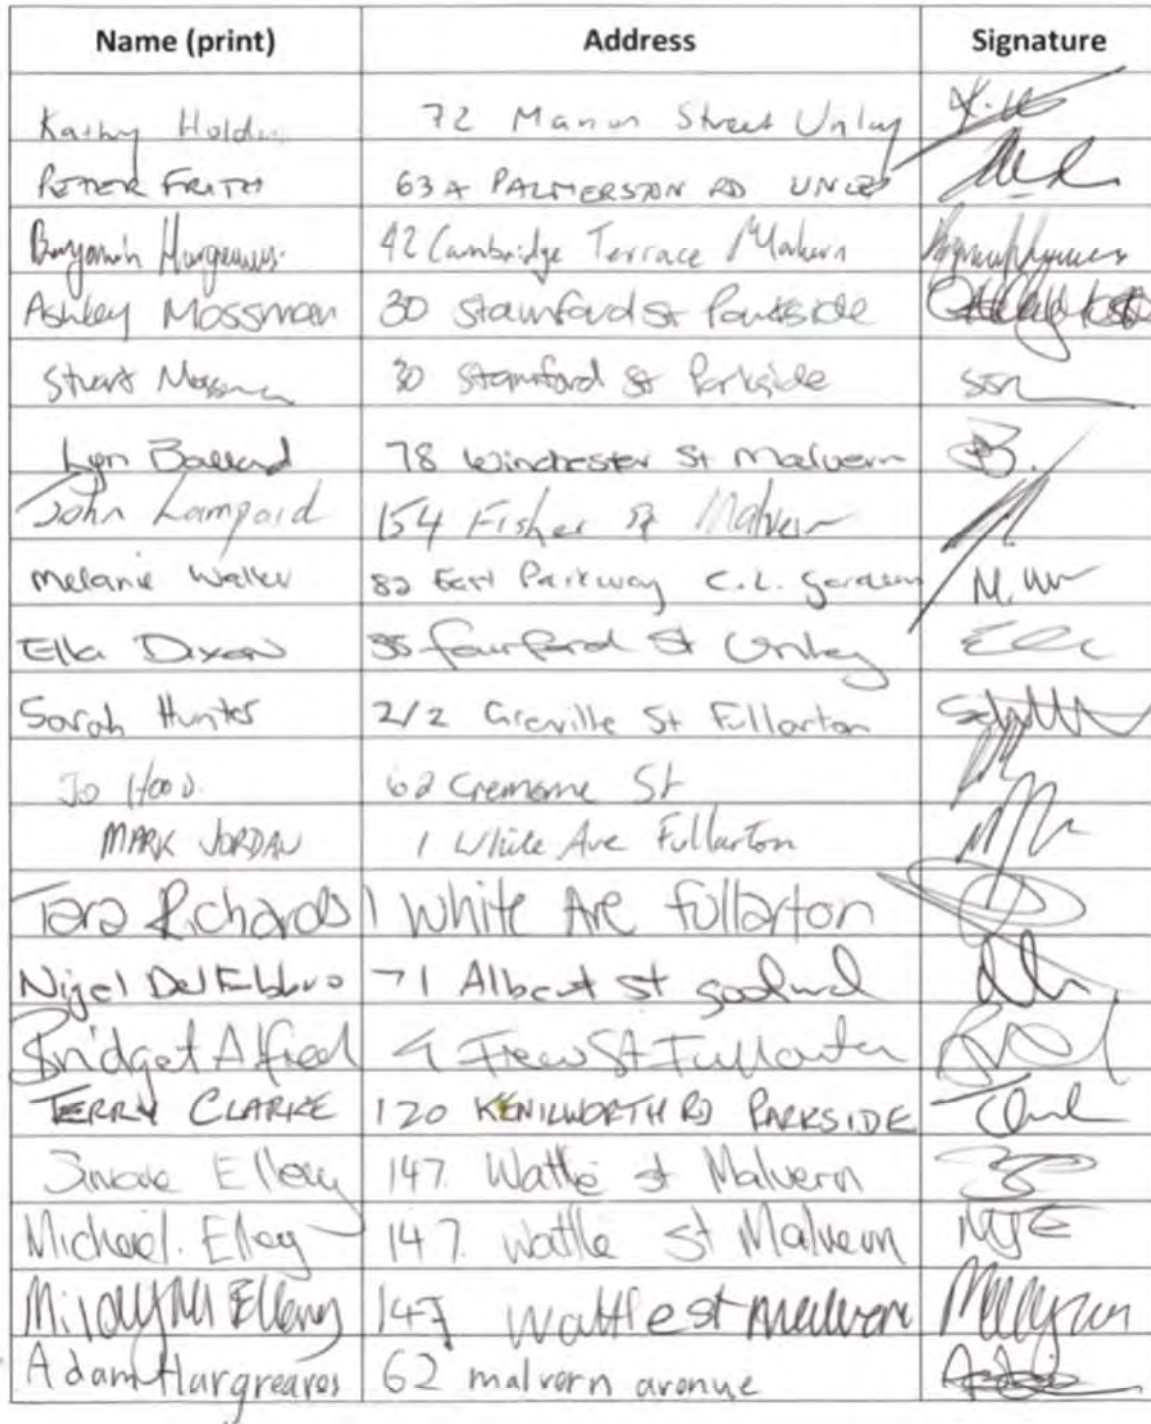 Name (print) Address Signature
Kathy 72 Street Unley
PETER FRITH 63A PALMERSTON RD UNLEY
42 Cambridge Terrace Malvern
Ashley Mossman 30 Stamford St Parkside
Stuart 30 Stamford St Parkside
Lyn Ballard 78 Winchester St Malvern
John Lampard 154 Fisher St Malvern
Melanie Waller 82 East Parkway C.L. Gardens
Ella Dixon 35 fairford St Unley
Sarah Hunter 2/2 Greville St Fullarton
Jo Hood. 62 Cremorne St
MARK JORDAN 1 White Ave Fullarton
Tara Richards 1 White Ave fullarton
Nigel Del Fabbro 71 Albert st goodwood
Bridget Alfred 4 Frew St Fullarton
TERRY CLARKE 120 KENILWORTH RD PARKSIDE
Elley 147. Wattle st Malvern
Michael. Elley 147. Wattle St Malvern MJE
Ellery 147 Wattle st malvern
Adam Hargreaves 62 malvern avenue